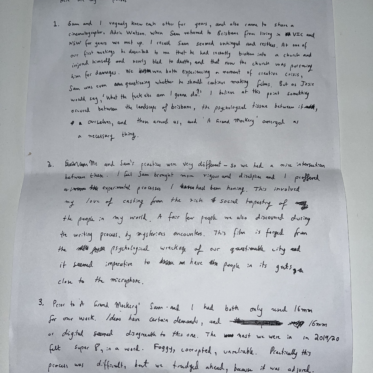 1. Sam and I vaguely knew each other for years, and also seem to share a
cinematographer, Adric Watson. When Sam returned to Brisbane from living in VIC and
NSW for years we met up. I recall Sam seemed energised and restless. As one
of our first meetings he departed to me that he had recently broken into a church and
injured himself and nearly bled to death, and that now the church was pursuing
him for damages. We were both experiencing a moment of creative crisis,
Sam was even questioning whether he should continue making films. But as
would say, 'what the fuck else am I gonna do?' I believe at this point something
occurred between the landscape of Brisbane, the psychological tissue between it
ourselves, and those around us, and 'A Grand Mockery' emerged as
a necessary thing.
2. My and Sam's practice were very different - so we had a nice intersection
between them. I feel Sam brought more rigour and discipline and I
experimental processes I had been honing. This involved
my love of casting from the rich social tapestry of
the people in my world. A fair few people we also discovered during
the writing process, by mysterious encounters. This film is forged from
the psychological wreckage of our questionable city and
it seemed imperative to have people in its guts
close to the microphone.
3. Prior to A Grand Mockery Sam and I had both only used 16mm
for our work. Ideas have certain demands, and 16mm
or digital seemed disagreeable to this one. The we were in in 2019/20
felt super 8, in a word. Foggy, corrupted, unreliable. Practically this
process was difficult, but we trudged ahead, because it was absurd.